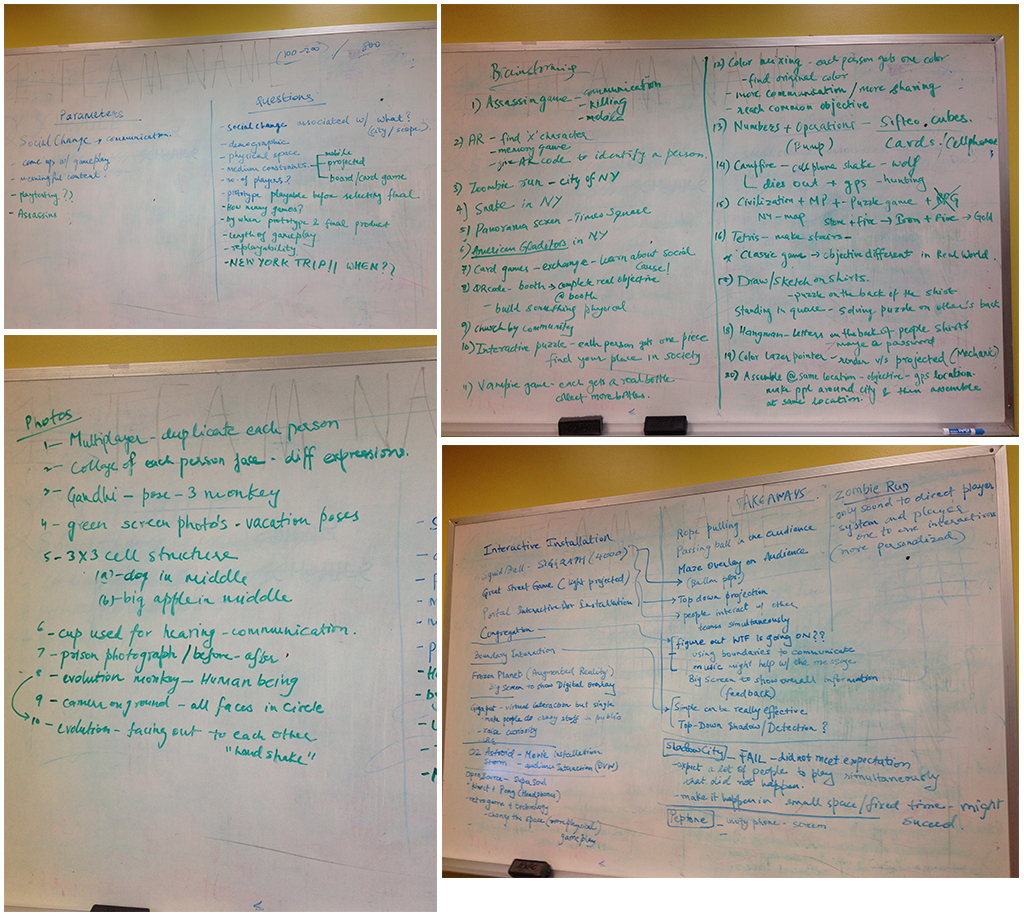 (100-200) / 800
Parameters
Social Change → communication.
- come up w/ gameplay
- meaningful content.
- playtesting??
- Assassins
Questions
- social change associated w/ what? (city/scope)
- demographic
- physical space
- medium constraints
mobile
projected
board/card game
- no. of players?
- prototype playable before selecting final
- How many games?
- by when prototype & final product
- length of gameplay
- replayability
- NEW YORK TRIP!! WHEN??
Brainstorming
1) Assassin game - communication
- killing
2) AR - find 'x' character
- memory game
- give AR code to identify a person.
3) Zoombie run - city of NY
4) Snake in NY
5) Panorama screen - Times Square
6) American Gladitors in NY
7) Card games - exchange - learn about social cause!
8) QRcode - booth → complete real objective @ booth
- build something physical
9) church by community
10) Interactive puzzle - each person gets one piece
find your place in society
11) Vampire game - each gets a real bottle
collect more bottles.
12) Color mixing - each person gets one color
- find original color
- more communication / more sharing
- reach common objective
13) Numbers + Operations - Sifteo cubes.
(Pump) Cards. / Cellphones
14) Campfire - cellphone shake - wolf
dies out + gps - hunting
15) Civilization + MP + Puzzle game +
NY - map stone + fire → Iron + Fire → Gold
16) Tetris - make stairs -
* Classic game → objective different in Real World.
17) Draw/Sketch on shirts.
- puzzle on the back of the shirt
Standing in queue - solving puzzle on other's back
18) Hangman - letters on the back of people shirts
- make a password
19) Color Lazer pointer - render v/s projected (Mechanic)
20) Assemble @ same location - objective - gps location.
make ppl around city & then assemble
at same location.
Photos
1 - Multiplayer - duplicate each person
2 - Collage of each person face - diff expressions.
3 - Gandhi - pose - 3 monkey
4 - green screen photo's - vacation poses
5 - 3x3 cell structure
(a) - dog in middle
(b) - big apple in middle
6 - cup used for hearing - communication.
7 - prison photograph / before - after
8 - evolution monkey - Human being
9 - camera on ground - all faces in circle
10 - evolution - facing out to each other
"hand shake"
Interactive Installation
Squidball - SIGGRAPH (4000)
Great Street Game (Light projected)
Portal Interactive Installation
Congregation
Boundary Interaction
Frozen Planet (Augmented Reality)
big screen to show Digital overlay
Gigaputt - virtual interaction but single
- make people do crazy stuff in public
- raise curiosity
O2 Astroid - Movie Installation
Storm - audience Interaction
Open Source -
- Kinect + Pong (Headphones)
- retro game + technology
- change the space (more physical)
gameplay
TAKEAWAYS.
Rope pulling
Passing ball in the audience
Maze overlay on Audience
Top down projection
→ people interact w/ other
teams simultaneously
figure out WTF is going ON??
using boundaries to communicate
music might help w/ the message
Big screen to show overall information
(feedback)
Simple can be really effective
Top-Down Shadow/Detection?
Shadow City - FAIL - did not meet expectation
- expect a lot of people to play simultaneously
that did not happen.
- make it happen in small space/fixed time - might
suceed.
- unity phone - screen
Zombie Run
- only sound to direct player
- system and player
one to one interactions
(more personalized)